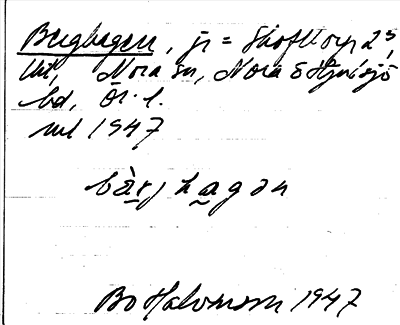 Berghagen, jr = Skofttorp 2⁵,
lht, Nora sn, Nora o Hjulsjö
bd, Ör. l.
utt 1947
bàrj hagən
Bo Halvarsson 1947